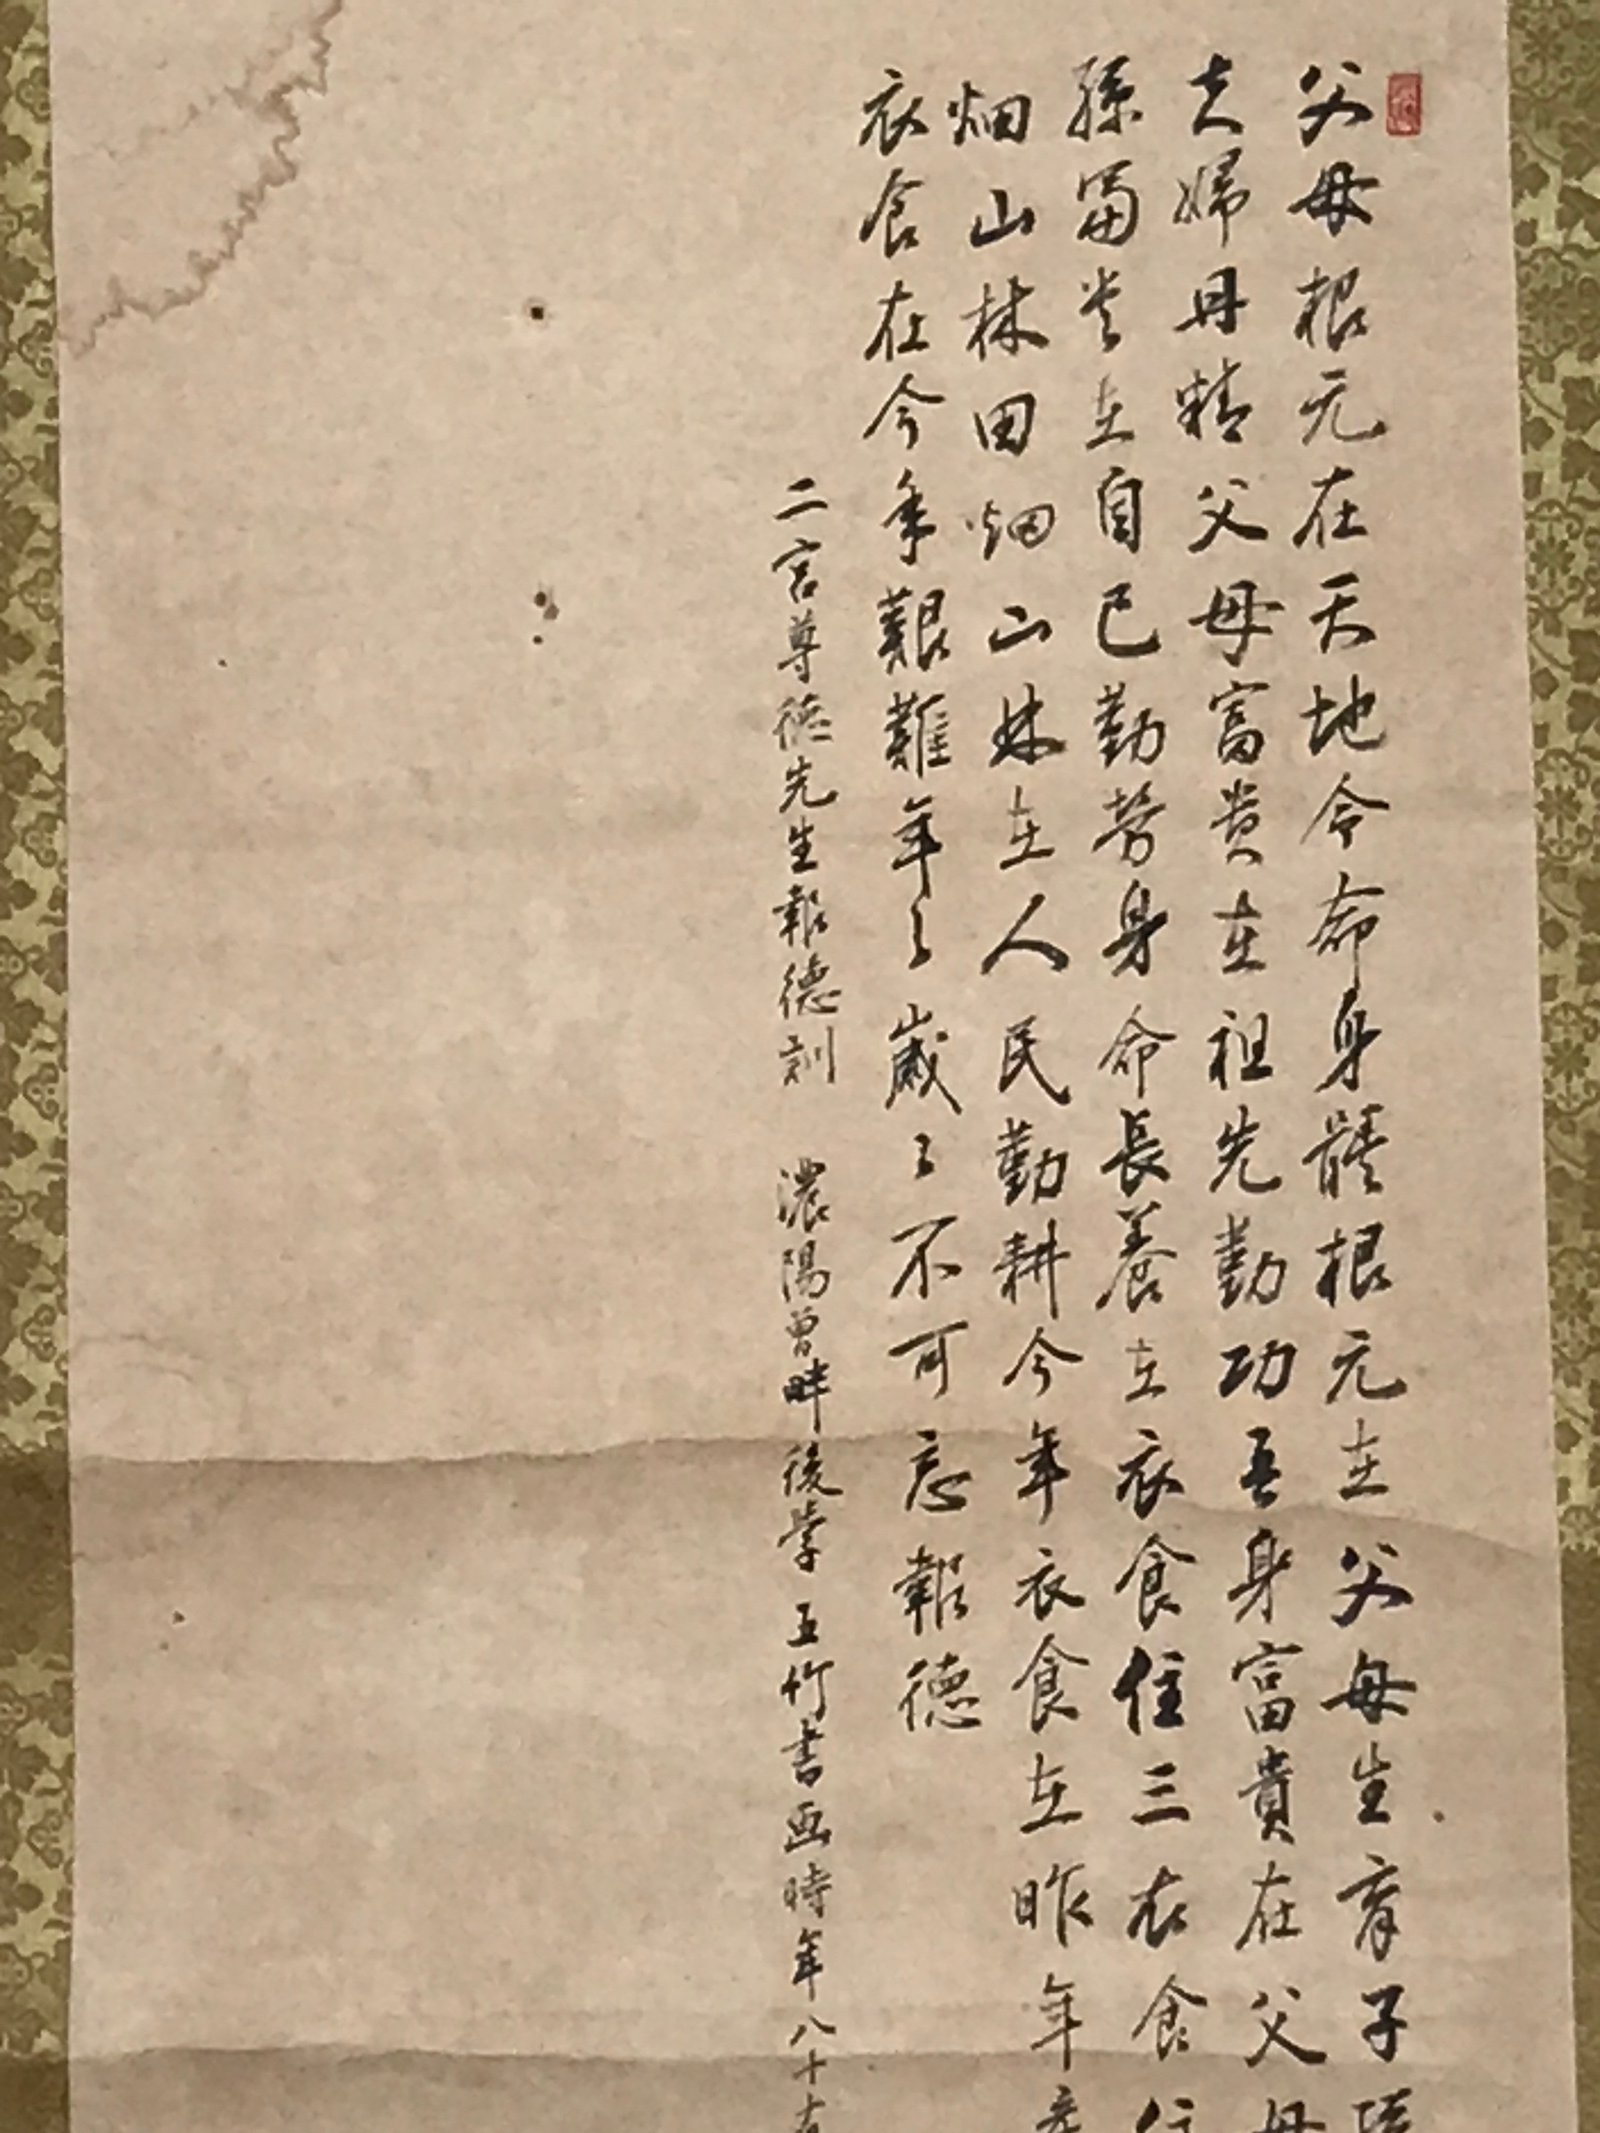 父母根元在天地令命身體根元在父母生育子
夫婦丹精父母富貴在祖先勤功吾身富貴在父母
孫富貴在自己勤労身命長養在衣食住三衣食住
畑山林田畑山林在人民勤耕今年衣食在昨年産
衣食在今年艱難年々歳々不可忘報徳
二宮尊徳先生報徳訓 濃陽曽畔後学 五竹書画時年八十有